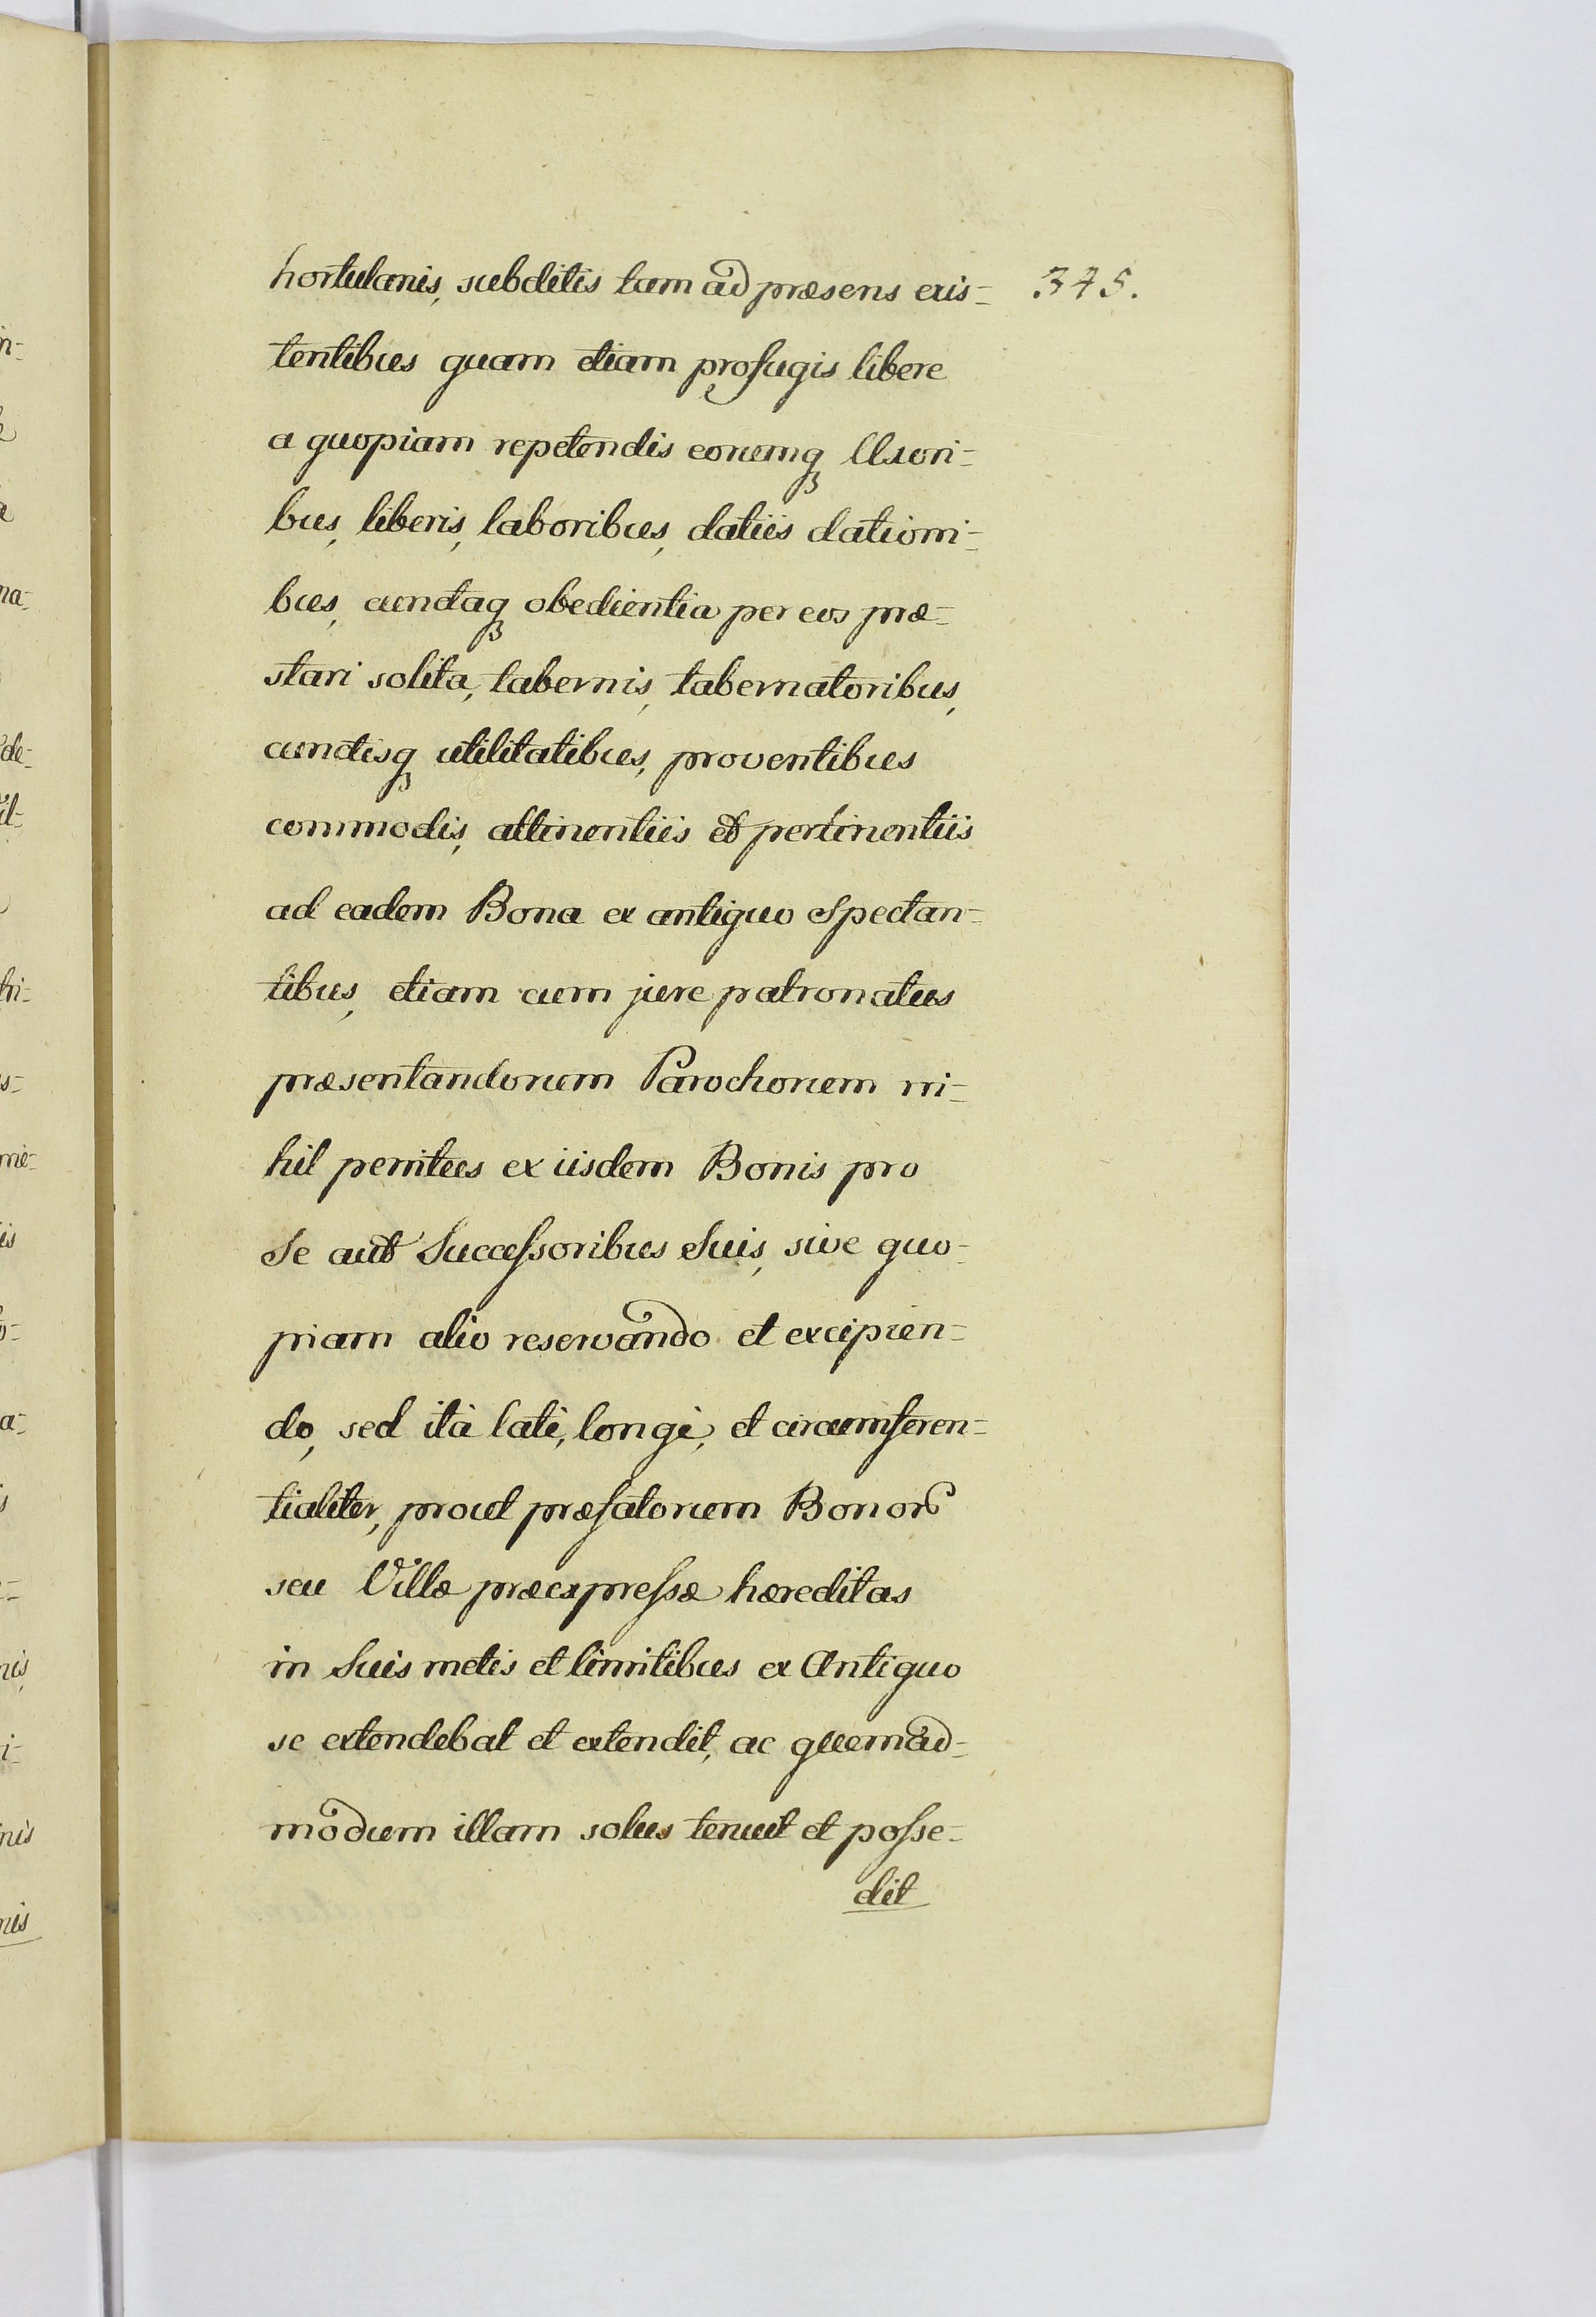 hortulanis, subditis tam ad præsens exis= 375.
tentibus quam etiam profugis libere
a quopiam repetendis eorumq3 Uxori=
bus, liberis, laboribus, datiis dationi=
bus, cunctaq3 obedientia per eos præ=
stari solita, tabernis, tabernatoribus,
cunctisq3 utilitatibus, proventibus
commodis, attinentiis et pertinentiis
ad eadem Bona ex antiquo Spectan=
tibus, etiam cum jure patronatus
præsentandorum Parochorum ni=
hil penitus ex iisdem Bonis pro
Se aut Succeſsoribus Suis, sive quo=
piam alio reservando et excipien=
do, sed ità latè, longè, et circumferen=
tialiter, prout præfatorum Bonor
seu Villæ præexpreſsæ hæreditas
in Suis metis et limitibus ex Antiquo
se extendebat et extendit, ac quemad=
modum illam solus tenuit et poſse=
dit